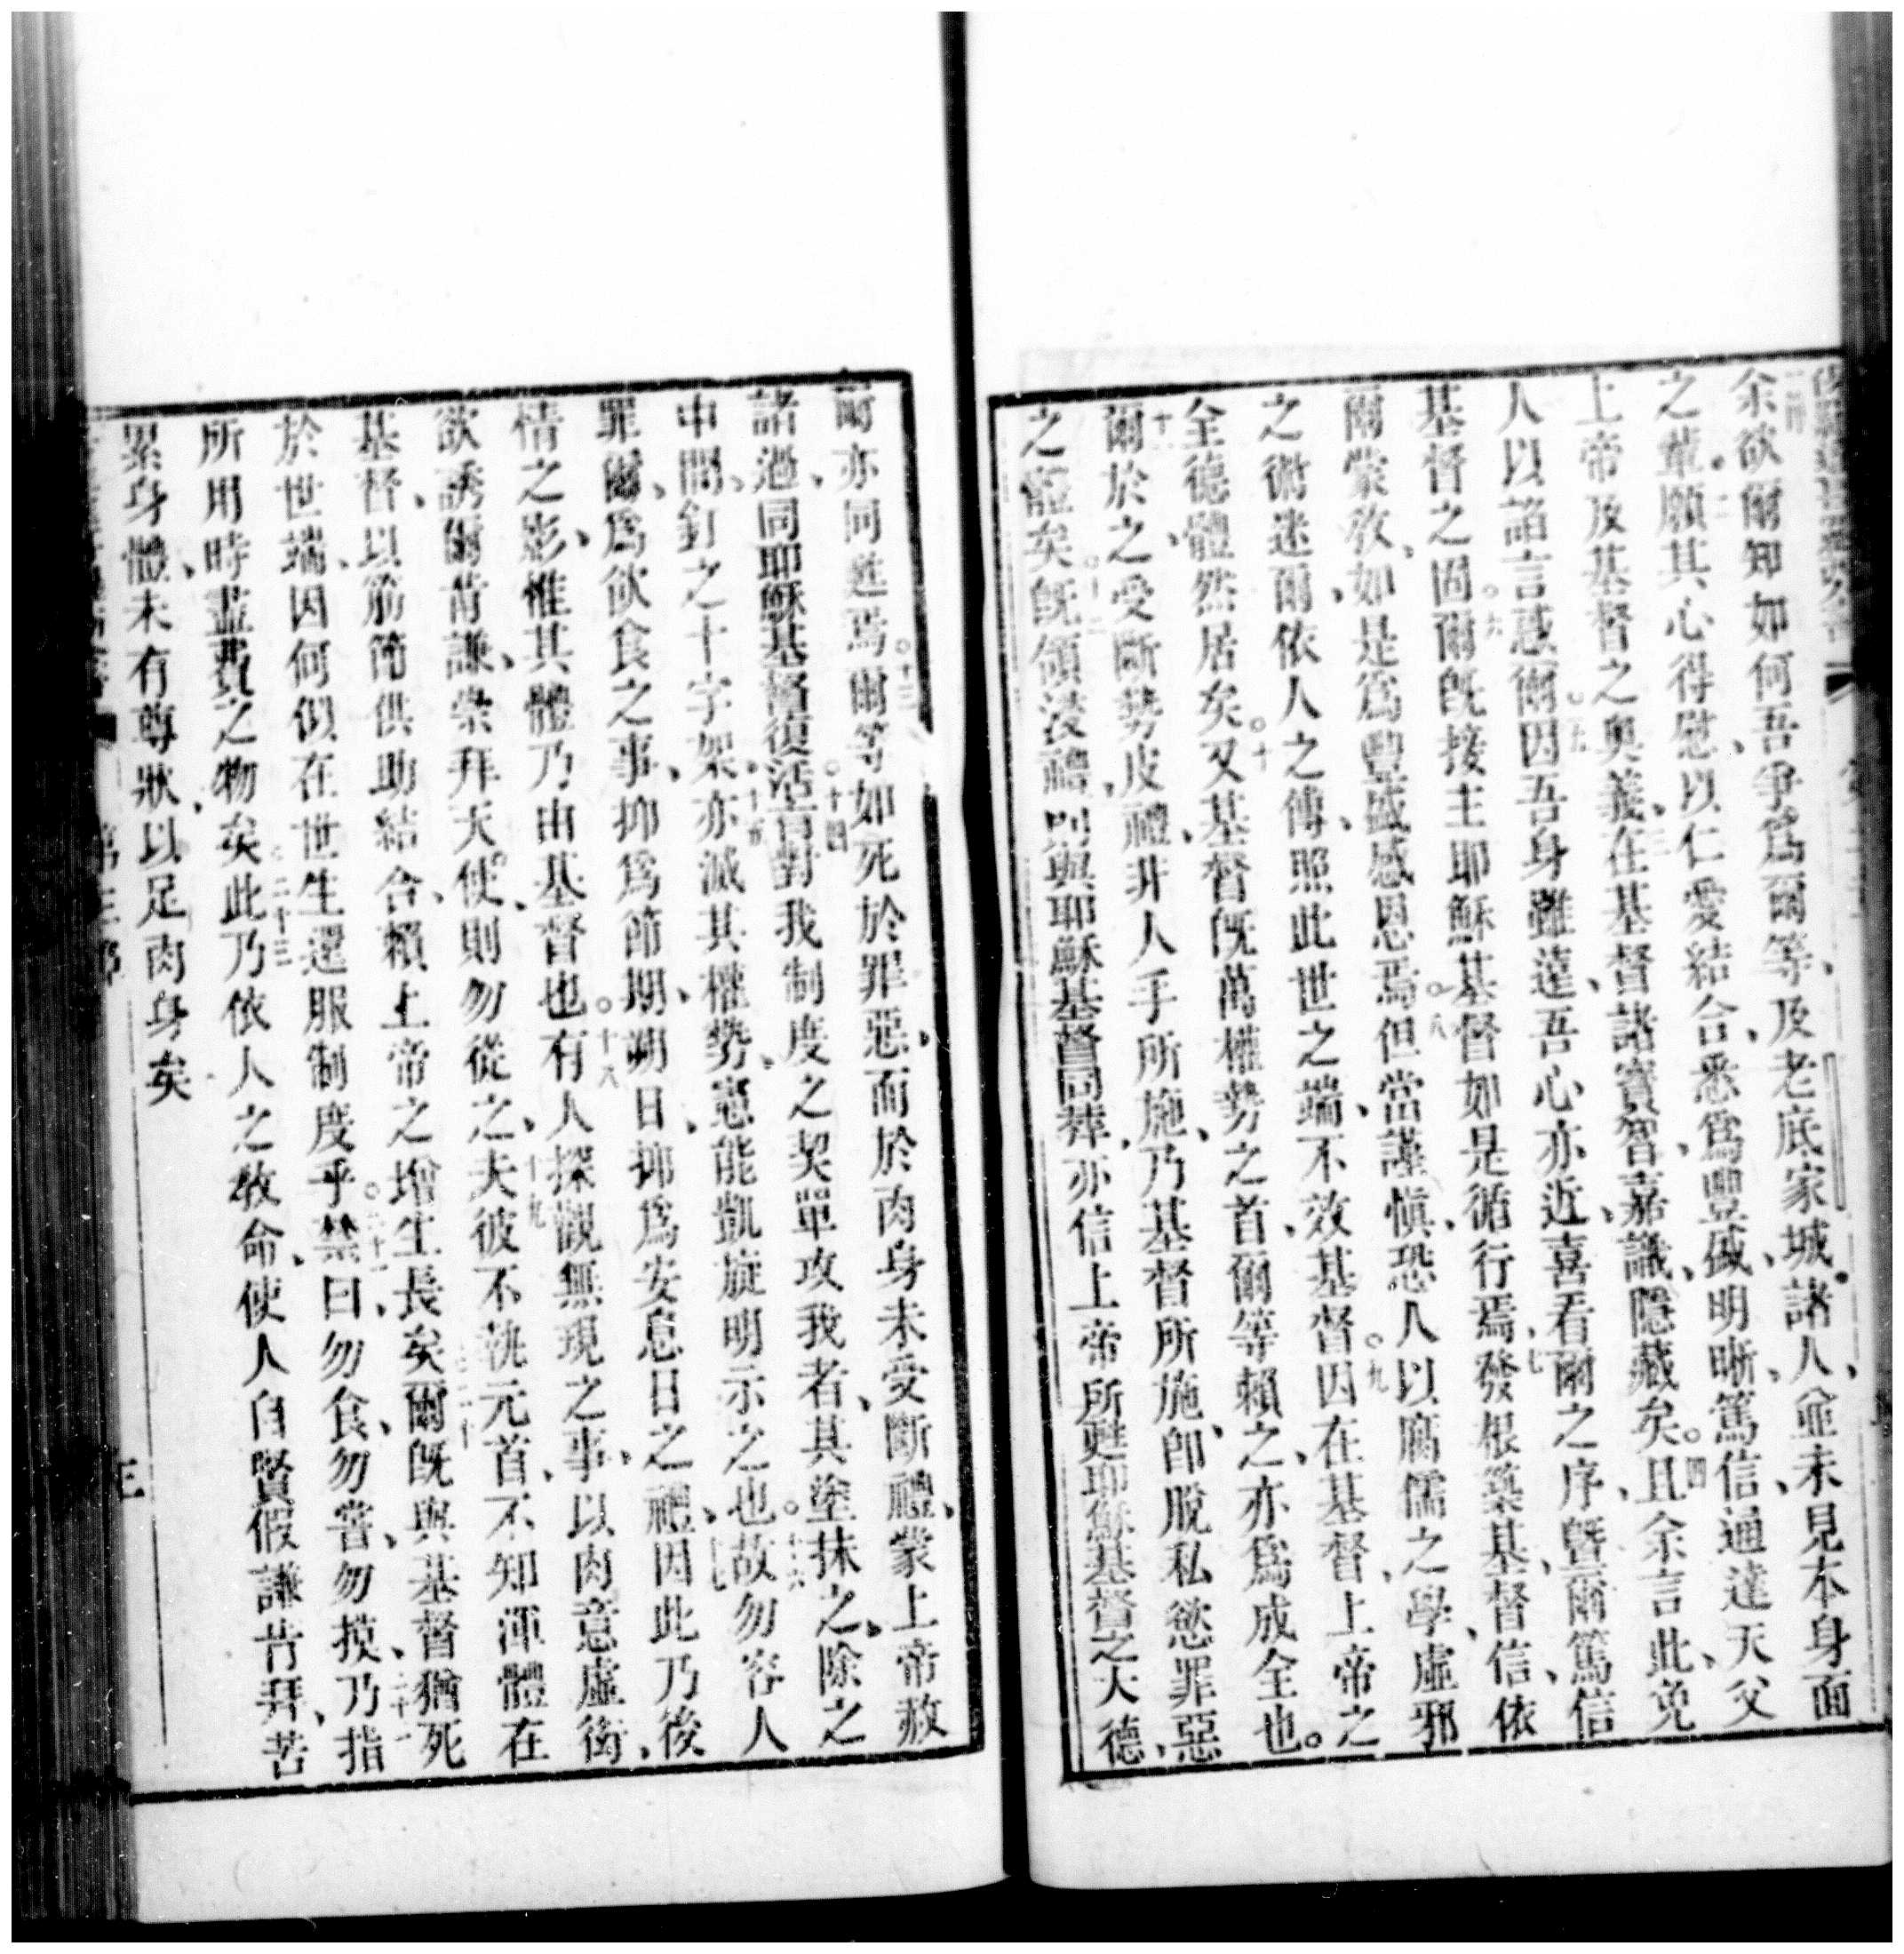 余欲爾知如何吾爭爲爾等、及老底家城諸人、並未見本身面
之輩。二願其心得慰、以仁愛結合、悉爲豐盛、明晰、篤信通達天父
上帝及基督之奧義、三在基督諸寶智、嘉識、隱藏矣。四且余言此、免
人以諂言惑爾。五因吾身雖遠、吾心亦近、喜看爾之序、曁爾篤信
基督之固。六爾旣接主耶穌基督如是循行焉、七發根築基、督信、依
爾蒙教、如是爲豐盛感恩焉。八但當謹愼、恐人以腐儒之學、虛邪
之術迷爾、依人之傳、照此世之端、不效基督。九因在基督、上帝之
全德體然居矣。十又基督旣萬權勢之首、爾等賴之、亦爲成全也。
十一爾於之、受斷勢皮禮、非人手所施、乃基督所施、卽脫私慾罪惡
之體矣。十二旣領浸禮、則與耶穌基督同葬、亦信上帝所甦耶穌基督之大德、
爾亦同甦焉。十三爾等如死於罪惡、而於肉身未受斷禮、蒙上帝赦
諸過、同耶穌基督復活。十四皆對我制度之契單攻我者、其塗抹之、除之
中間、釘之十字架。十五亦滅其權勢、憲能凱旋明示之也。十六故勿容人
罪爾、爲飲食之事、抑爲節期、朔日、抑爲安息日之禮、十七因此乃後
情之影、惟其體乃由基督也。十八有人探觀無現之事、以肉意虛衒、
欲誘爾肯謙、崇拜天使、則勿從之、十九夫彼不執元首、不知渾體在
基督、以筋節供助結合、賴上帝之增生長矣。二十爾旣與基督猶死
於世端、因何似在世生還服制度乎。二十一禁曰、勿食、勿嘗、勿摸、二十二乃指
所用時盡費之物矣。二十三此乃依人之教命、使人自賢假謙肯拜、苦
累身體、未有尊狀、以足肉身矣